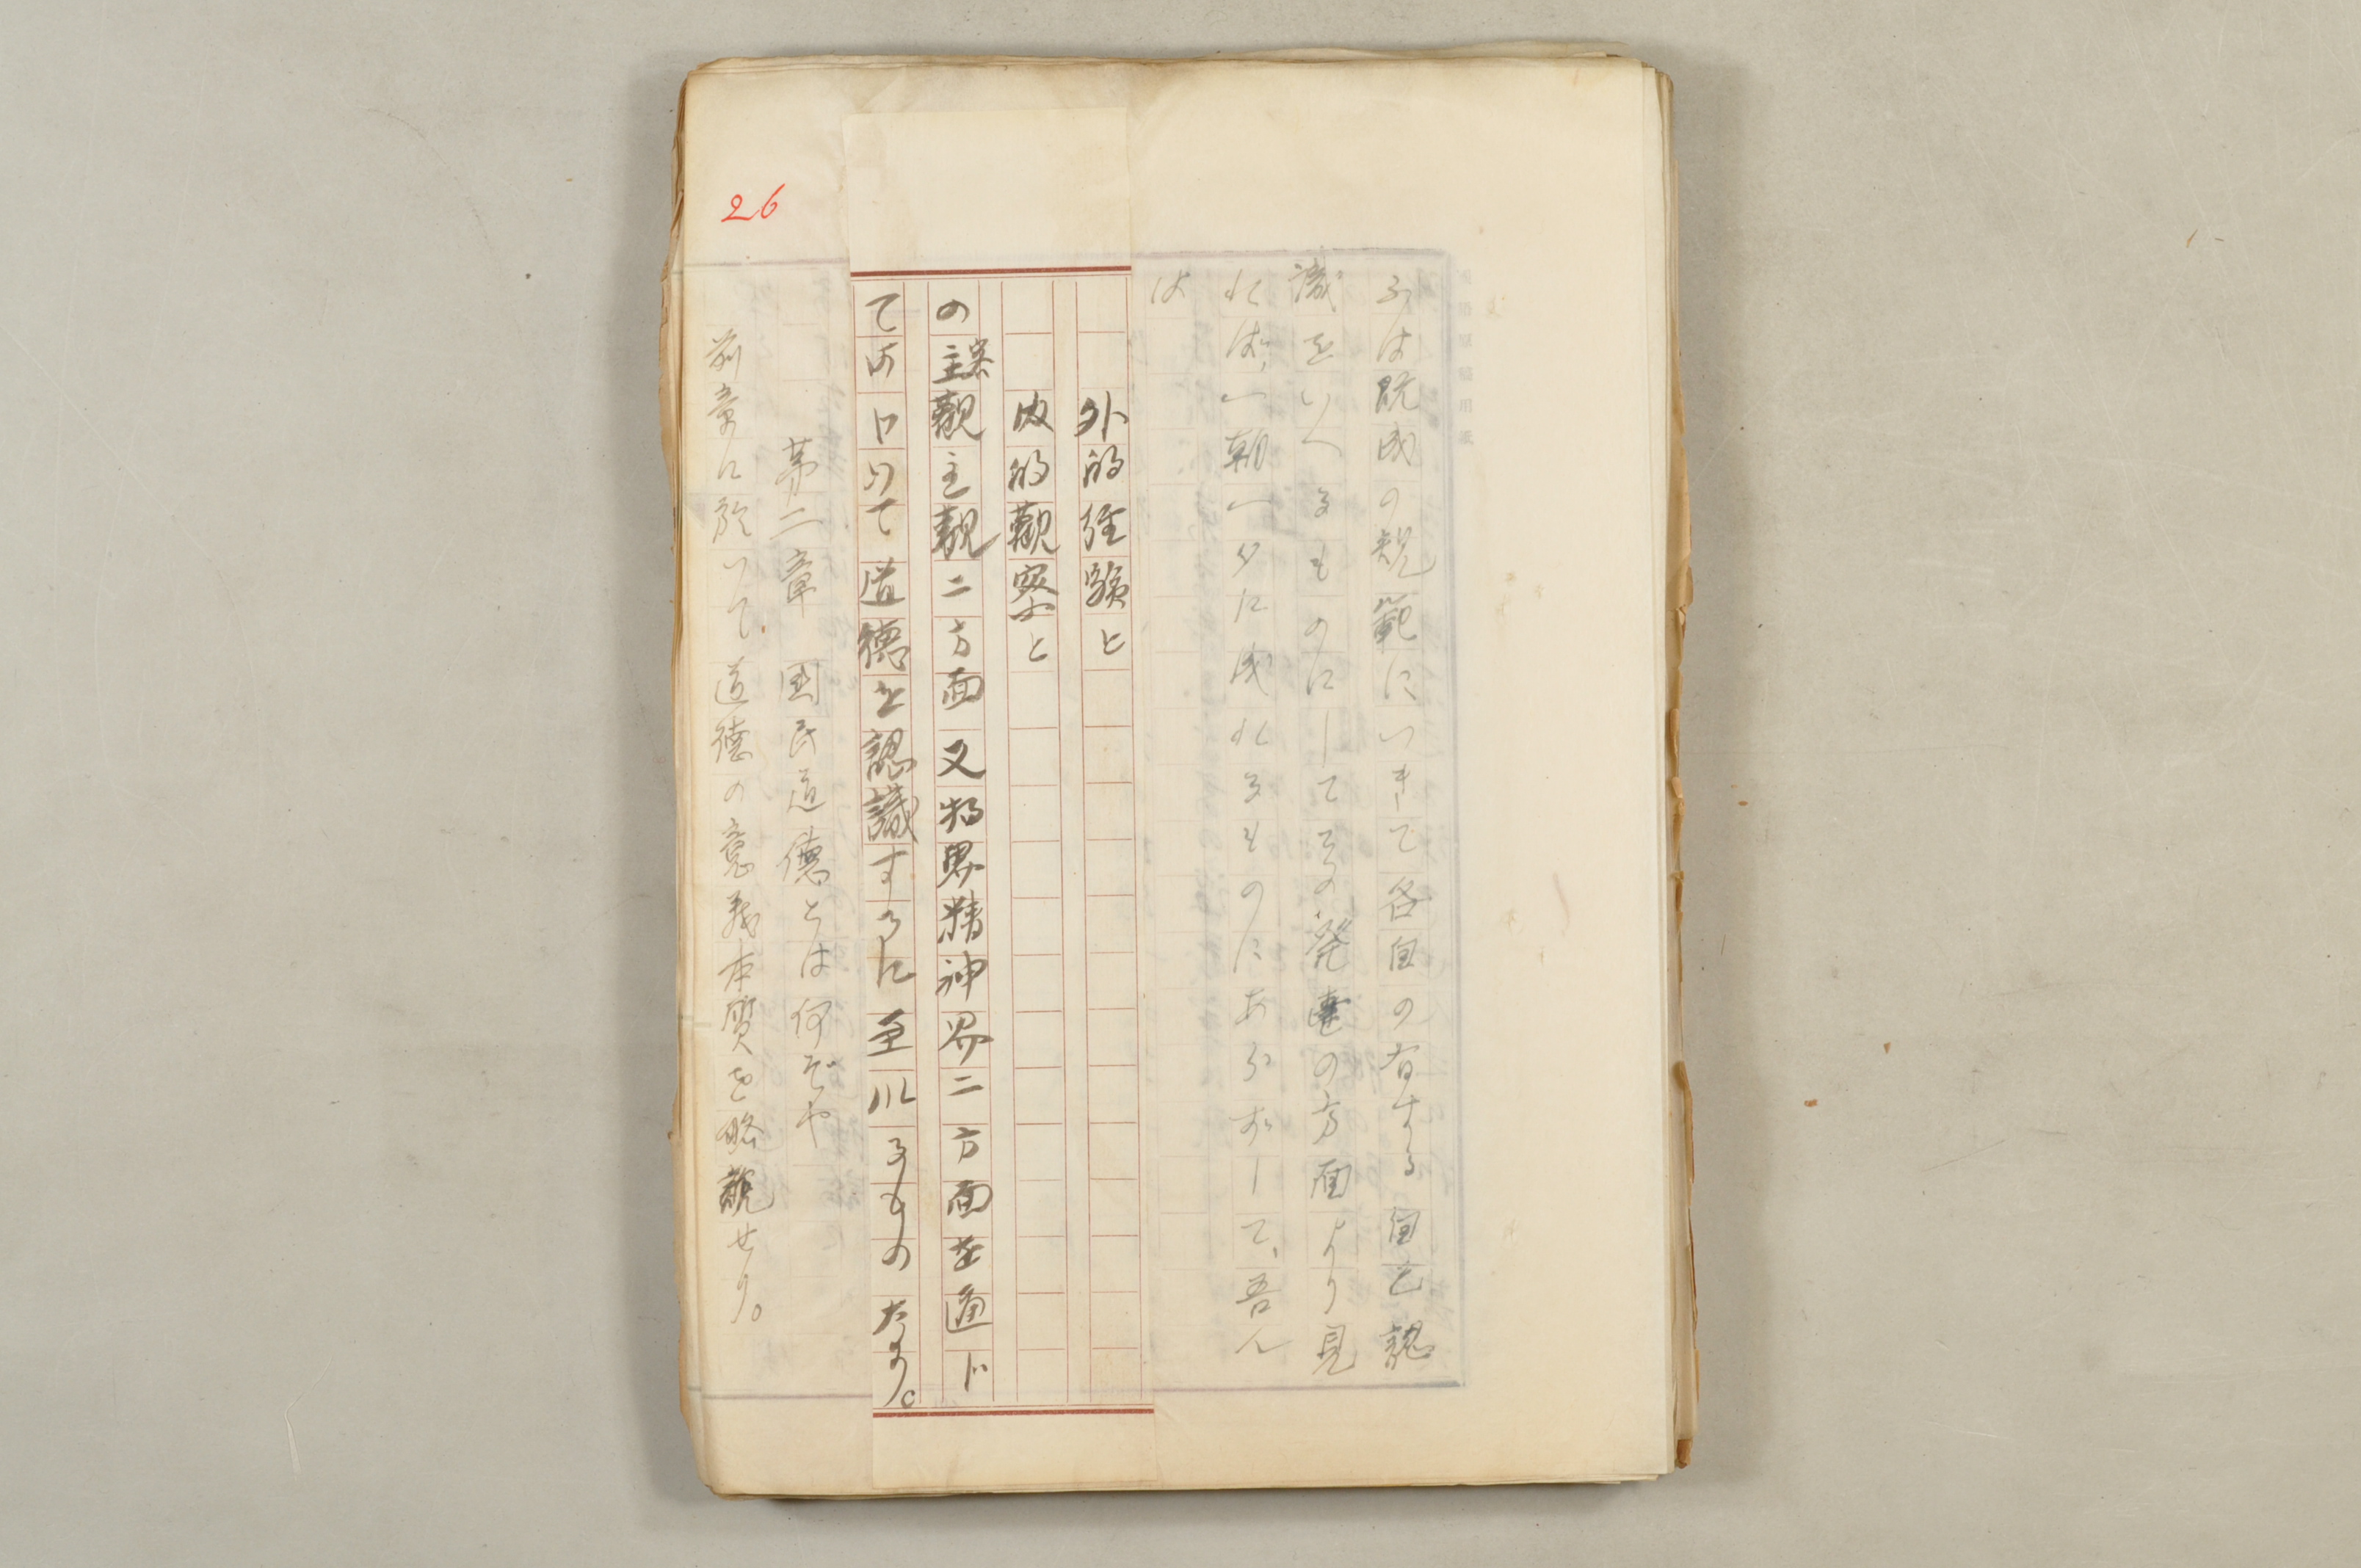 ふは既成の規範につきて各自の有する自己認
識をいへるものにしてその発達の方面より見
れば、一朝一夕に成れるものにあらずして、吾人
は
外的経験と
内的観察と
の客観主観二方面又物界精神界二方面を通じ
て
道徳を認識するに至れるものなり。
第二章 国民道徳とは何ぞや
前章に於いて道徳の意義本質を略観せり。
26